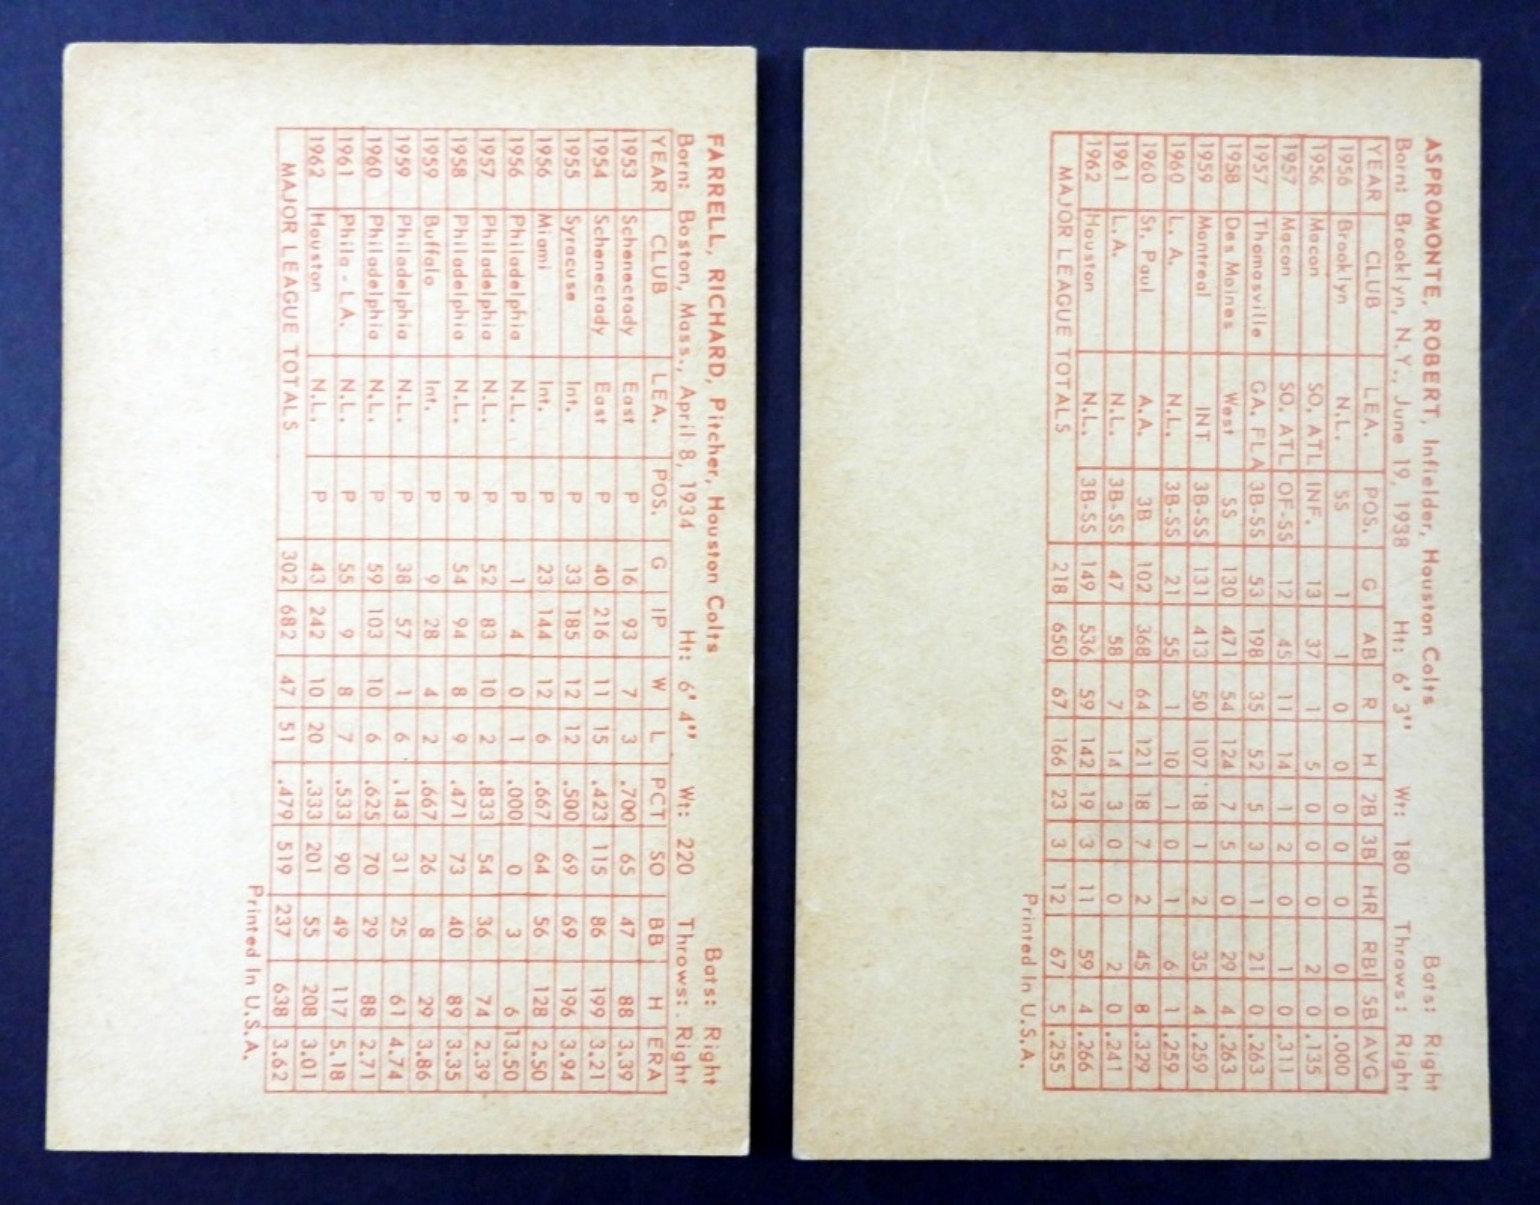 FARRELL, RICHARD, Pitcher, Houston Colts Bats: Right
Born: Boston, Mass., April 8, 1934 Ht: 6' 4" Wt: 220 Throws: Right
YEAR CLUB LEA. POS. G IP W L PCT SO BB H ERA
1953 Schenectady East P 16 93 7 3 .700 65 47 88 3.39
1954 Schenectady East P 40 216 11 15 .423 115 86 199 3.21
1955 Syracuse Int. P 33 185 12 12 .500 69 69 196 3.94
1956 Miami Int. P 23 144 12 6 .667 64 56 128 2.50
1956 Philadelphia N.L. P 1 4 0 1 .000 0 3 6 13.50
1957 Philadelphia N.L. P 52 83 10 2 .833 54 36 74 2.39
1958 Philadelphia N.L. P 54 94 8 9 .471 73 40 89 3.35
1959 Buffalo Int. P 9 28 4 2 .667 26 8 29 3.86
1959 Philadelphia N.L. P 38 57 1 6 .143 31 25 61 4.74
1960 Philadelphia N.L. P 59 103 10 6 .625 70 29 88 2.71
1961 Phila - L.A. N.L. P 55 9 8 7 .533 90 49 117 5.18
1962 Houston N.L. P 43 242 10 20 .333 201 55 208 3.01
MAJOR LEAGUE TOTALS 302 682 47 51 .479 519 237 638 3.62
Printed In U.S.A.
ASPROMONTE, ROBERT, Infielder, Houston Colts Bats: Right
Born: Brooklyn, N.Y., June 19, 1938 Ht: 6' 3" Wt: 180 Throws: Right
YEAR CLUB LEA. POS. G AB R H 2B 3B HR RBI SB AVG
1956 Brooklyn N.L. SS 1 1 0 0 0 0 0 0 0 .000
1956 Macon SO. ATL INF. 13 37 1 5 0 0 0 2 0 .135
1957 Macon SO. ATL OF-SS 12 45 11 14 1 2 0 1 0 .311
1957 Thomasville GA. FLA 3B-SS 53 198 35 52 5 3 1 21 0 .263
1958 Des Moines West SS 130 471 54 124 7 5 0 29 4 .263
1959 Montreal INT 3B-SS 131 413 50 107 18 1 2 35 4 .259
1960 L. A. N.L. 3B-SS 21 55 1 10 1 0 1 6 1 .259
1960 St. Paul A.A. 3B 102 368 64 121 18 7 2 45 8 .329
1961 L.A. N.L. 3B-SS 47 58 7 14 3 0 0 2 0 .241
1962 Houston N.L. 3B-SS 149 536 59 142 19 3 11 59 4 .266
MAJOR LEAGUE TOTALS 218 650 67 166 23 3 12 67 5 .255
Printed In U.S.A.